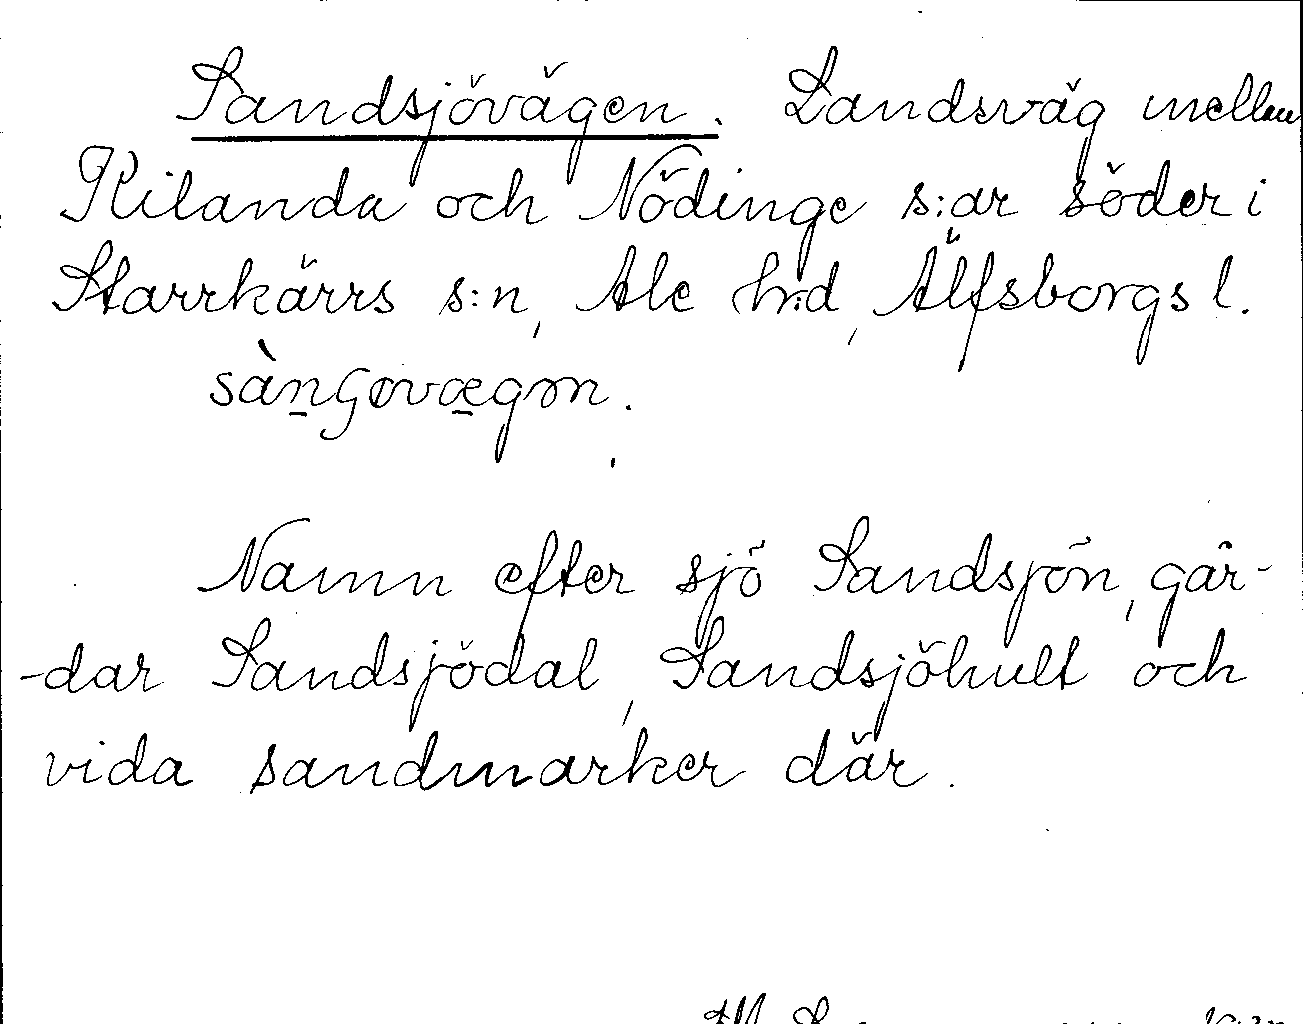 Sandsjövägen. Landsväg mellan
Kilanda och Nödinge s:ar söder i
Starrkärrs s:n, Ale h:d, Älfsborgs l.
Namn efter sjö Sandsjön, går-
-dar Sandsjödal, Sandsjöhult och
vida sandmarker där.